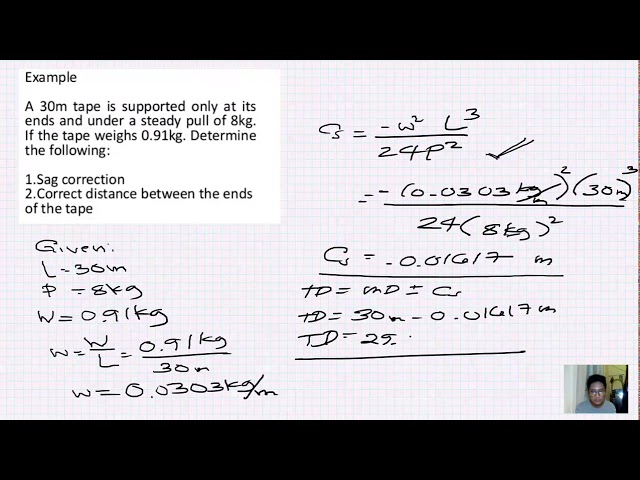 Example
A 30m tape is supported only at its
ends and under a steady pull of 8kg.
If the tape weighs 0.91kg. Determine
the following:
1.Sag correction
2.Correct distance between the ends
of the tape
Given:
L = 30m
P = 8kg
W = 0.91kg
w = W/L = 0.91kg/30m
w = 0.0303kg/m
Cs = -w² L³ / 24P²
= -(0.0303 kg/m)² (30m)³ / 24(8kg)²
Cs = -0.01617 m
TD = MD ± Cs
TD = 30m - 0.01617 m
TD = 29.